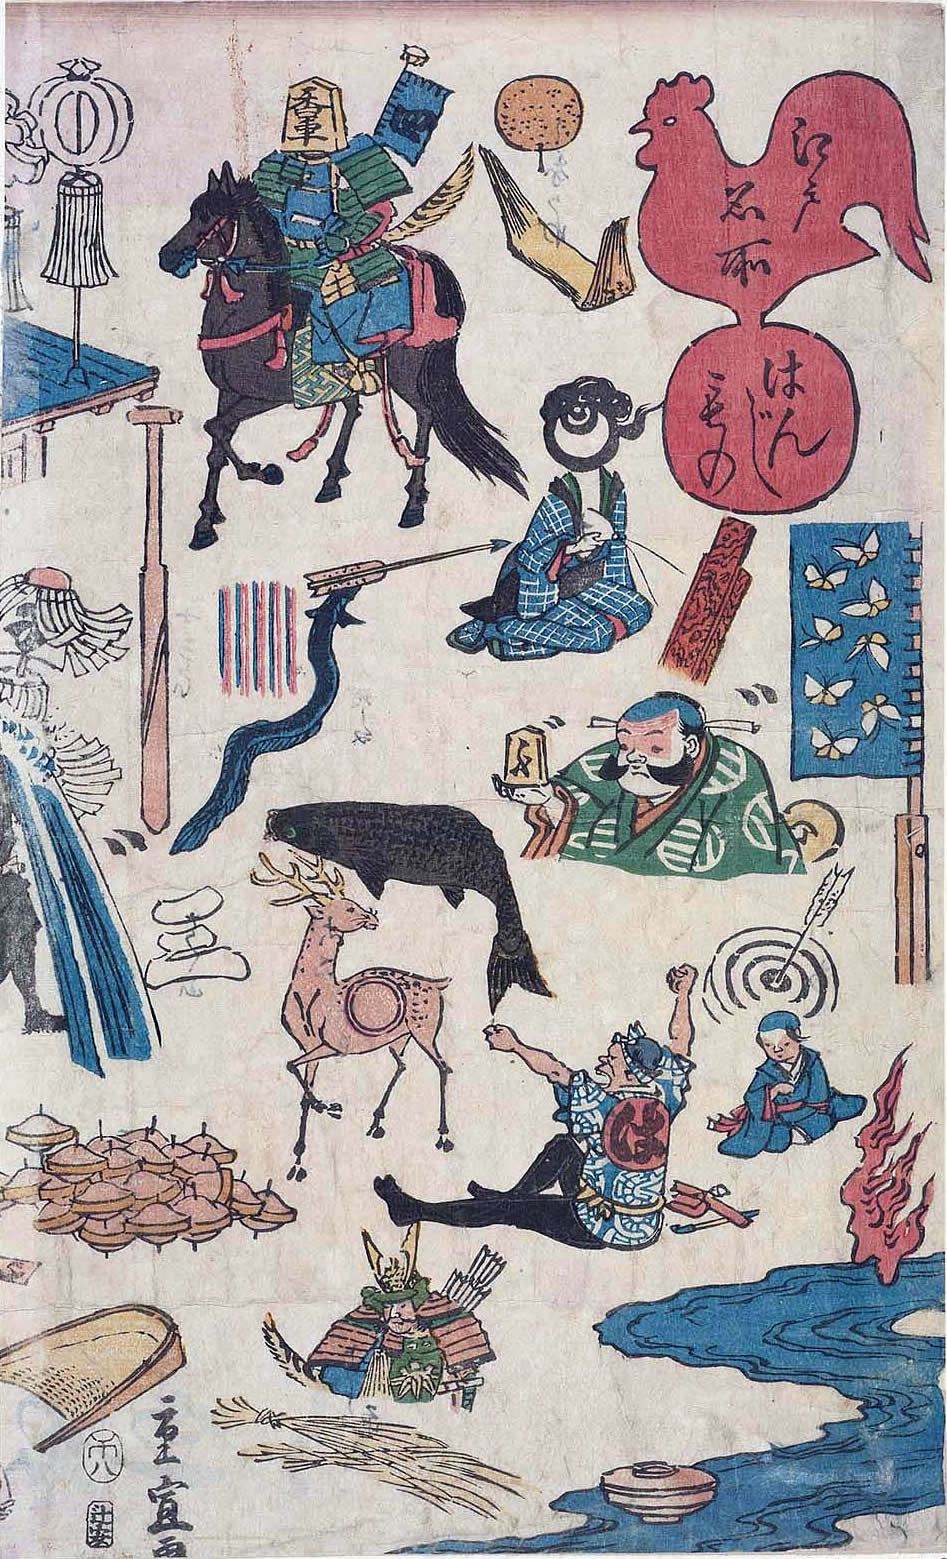 江戸
名所
はんじ
もの
香車
は
重宣画